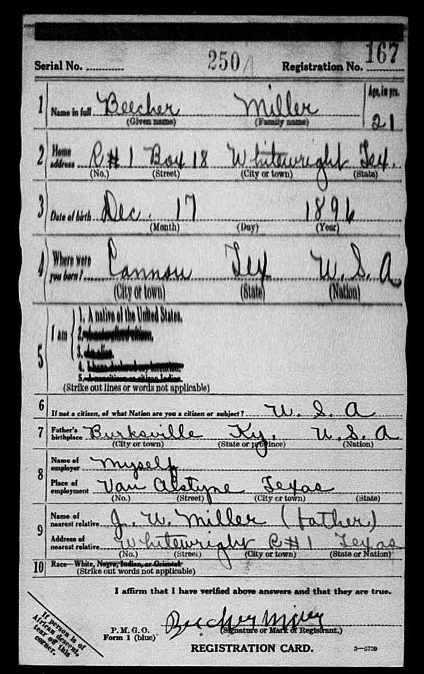 Serial No. 250 Registration No. 167
1 Name in full Beecher Miller Age, in yrs. 21
(Given name) (Family name)
2 Home address R#1 Box 18 Whitewright Tex.
(No.) (Street) (City or town) (State)
3 Date of birth Dec. 17 1896
(Month) (Day) (Year)
4 Where were you born? Cannon Tex U. S. A
(City or town) (State) (Nation)
5 I am
1. A native of the United States.
2.
3. An alien.
4.
5.
(Strike out lines or words not applicable)
6 If not a citizen, of what Nation are you a citizen or subject? U. S A
7 Father's birthplace Burksville Ky. U. S A
(City or town) (State or province) (Nation)
8 Name of employer Myself
Place of employment Van Alstyne Texas
(No.) (Street) (City or town) (State)
9 Name of nearest relative J. W. Miller (father)
Address of nearest relative Whitewright R#1 Texas
(No.) (Street) (City or town) (State or Nation)
10 Race—White, Negro, Indian, or Oriental
(Strike out words not applicable)
I affirm that I have verified above answers and that they are true.
P. M. G. O.
Form 1 (blue)
Beecher Miller
(Signature or Mark of Registrant.)
REGISTRATION CARD.
If person is of African descent, tear off this corner.